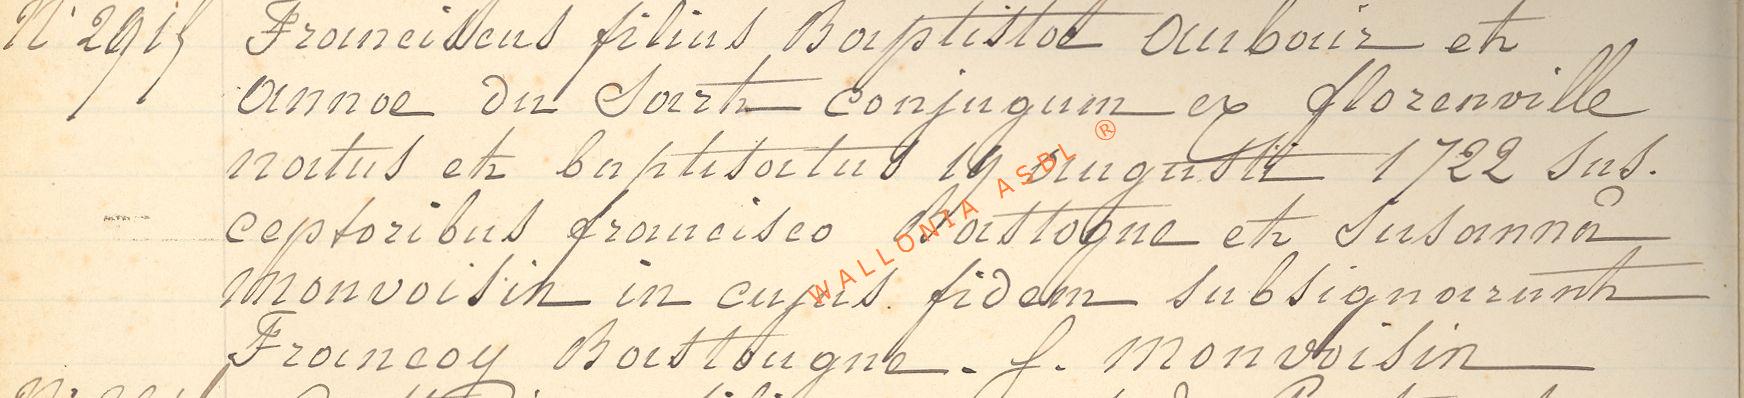 N° 2915 Franciscus filius Baptistae Aubair et
annae du Sart conjugum ex florenville
natus et baptisatus 19 augusti 1722 sus.
ceptoribus francisco Bastogne et Susannâ
Monvoisin in cujus fidem subsignarunt
Francoy Bastougne. f. Monvoisin
WALLONIA ASBL ®